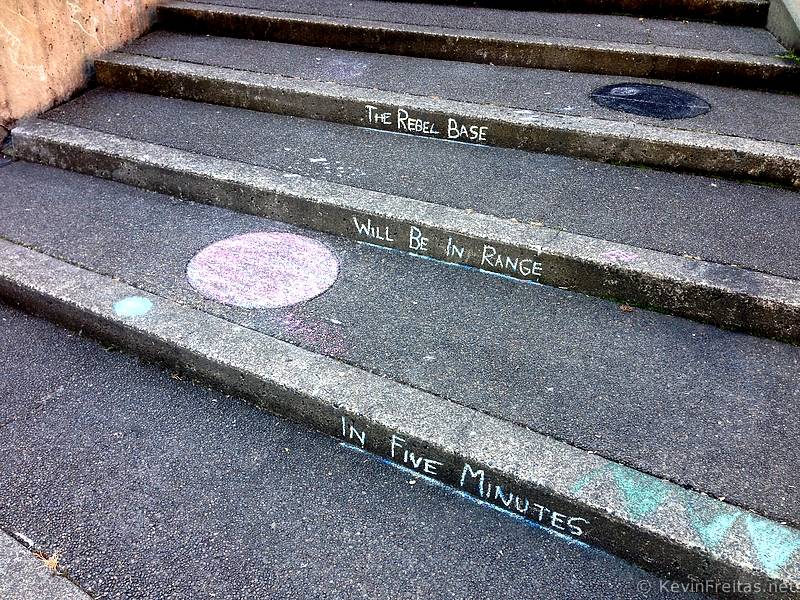 THE REBEL BASE
WILL BE IN RANGE
IN FIVE MINUTES
© KevinFreitas.net